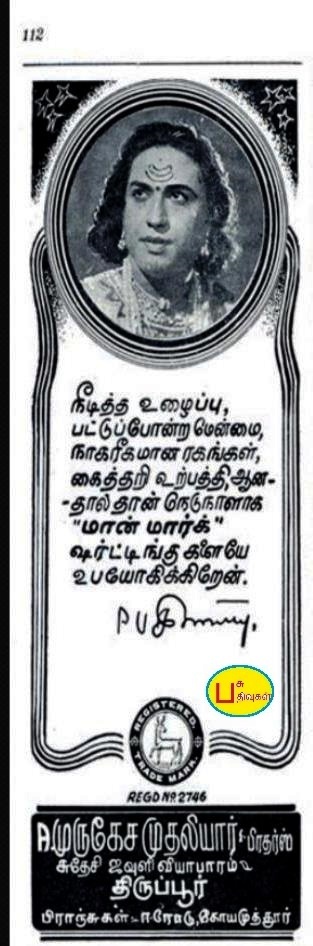 112
நீடித்த உழைப்பு,
பட்டுப்போன்ற மேன்மை,
நாகரீகமான ரகங்கள்,
கைத்தறி உற்பத்தி, ஆன-
-தால் தான் நெடுநாளாக
"மான் மார்க்"
ஷர்ட்டிங்குகளையே
உபயோகிக்கிறேன்.
P U
பசு
பதிவுகள்
REGISTERED
TRADE MARK
REGD Nº 2746
A. முருகேச முதலியார் & பிரதர்ஸ்
சுதேசி ஜவுளி வியாபாரம்
திருப்பூர்
பிராஞ்சுகள்-ஈரோடு, கோயமுத்தூர்